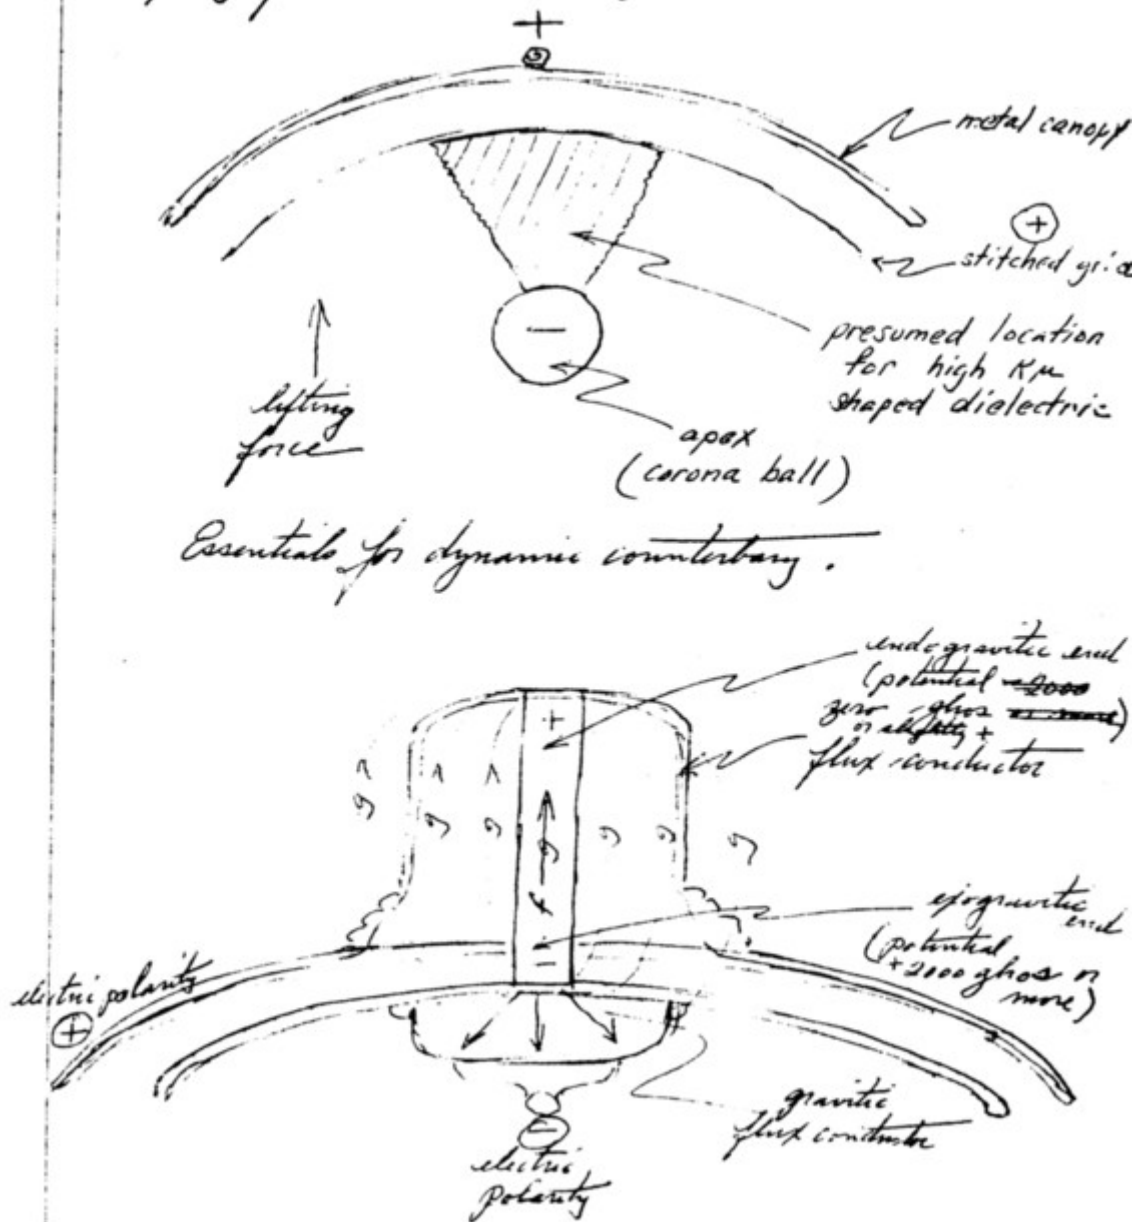 +
metal canopy
+
stitched grid
presumed location
for high Kμ
shaped dielectric
−
lifting
force
apex
(corona ball)
Essentials for dynamic counterbary.
endogravitic end
(potential -2000
zero ghos or more)
or slightly +
flux conductor
+
g g g g g g
g
f
−
exogravitic
end
(potential
+2000 ghos or
more)
electric polarity
+
gravitic
flux conductor
−
electric
polarity